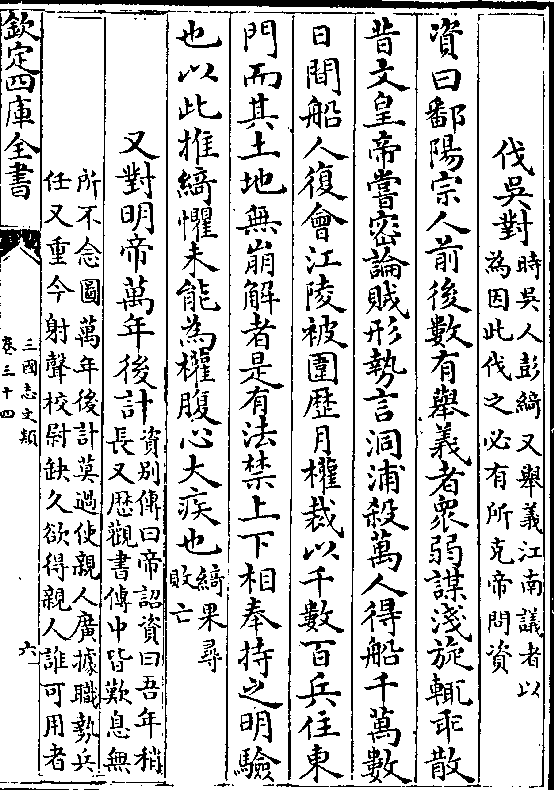 伐吳對時吳人彭綺又舉義江南議者以
為因此伐之必有所克帝問資
資曰鄱陽宗人前後數有舉義者衆弱謀淺旋輒乖散
昔文皇帝嘗密論賊形勢言洞浦殺萬人得船千萬數
日間船人復會江陵被圍歴月權裁以千數百兵住東
門而其土地無崩解者是有法禁上下相奉持之明驗
也以此推綺懼未能為權腹心大疾也綺果尋
敗亡
又對明帝萬年後計資别傳曰帝詔資曰吾年稍
長又歴觀書傳中皆歎息無
所不念圖萬年後計莫過使親人廣據職勢兵
任又重今射聲校尉缺久欲得親人誰可用者
欽定四庫全書
三國志文類
卷三十四
六